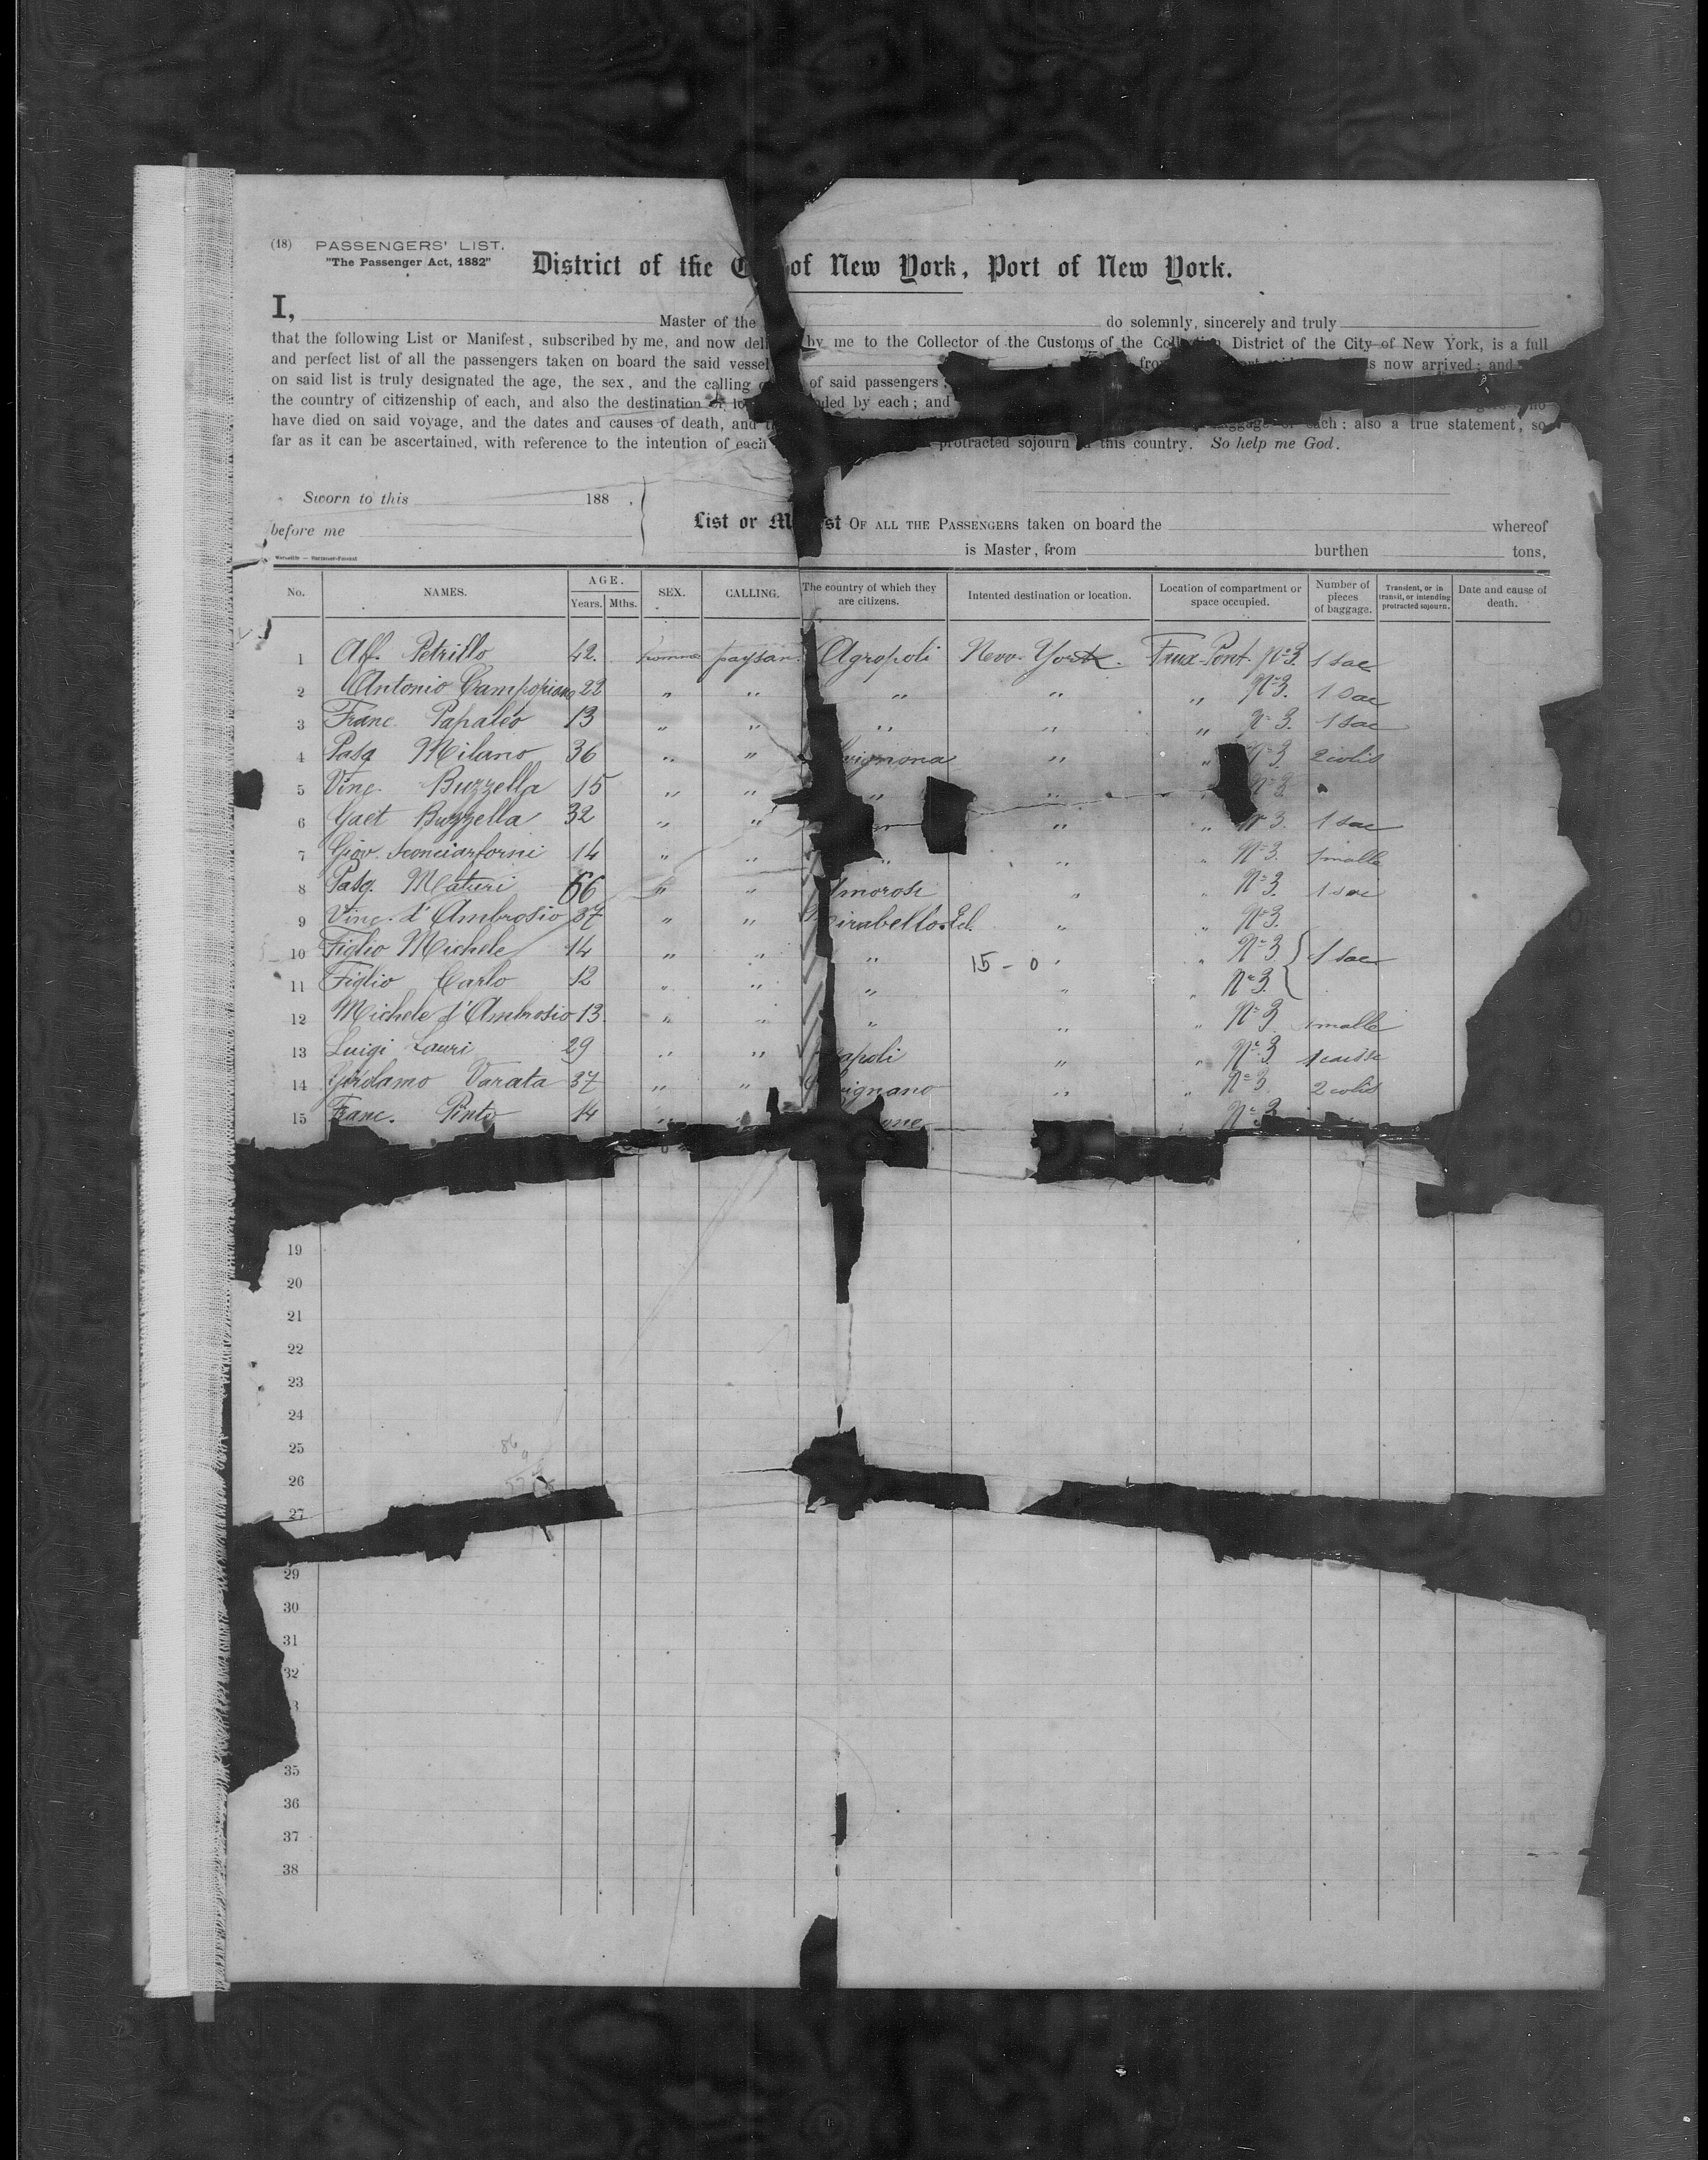 (18) PASSENGERS' LIST.
"The Passenger Act, 1882"
District of the C of New York, Port of New York.
I, Master of the do solemnly, sincerely and truly
that the following List or Manifest, subscribed by me, and now del by me to the Collector of the Customs of the Coll District of the City of New York, is a full
and perfect list of all the passengers taken on board the said vessel fro s now arrived; and
on said list is truly designated the age, the sex, and the calling of said passengers
the country of citizenship of each, and also the destination or lo ded by each; and
have died on said voyage, and the dates and causes of death, and ach; also a true statement, so
far as it can be ascertained, with reference to the intention of each protracted sojourn this country. So help me God.
Sworn to this 188 .
before me
List or M st OF ALL THE PASSENGERS taken on board the whereof
is Master, from burthen tons,
No. NAMES. AGE. Years. Mths. SEX. CALLING. The country of which they are citizens. Intented destination or location. Location of compartment or space occupied. Number of pieces of baggage. Transient, or in transit, or intending protracted sojourn. Date and cause of death.
1 Alf. Petrillo 42. homme paysan Agropoli New-York. Faux-Pont n°3. 1 sac
2 Antonio Campopiano 22 " " " " " n°3. 1 sac
3 Franc. Papaleo 13 " " " " " n°3. 1 sac
4 Pasq Milano 36 " " " " n°3 2 colis
5 Vinc. Buzzella 15 " " " " n°3
6 Gaet Buzzella 32 " " " " n°3. 1 sac
7 Giov. 14 " " " " " n°3. 1 malle
8 Pasq. Maturi 66 " " morosi " " n°3 1 sac
9 Vinc. d'Ambrosio 37 " " irabello Ecl. " " n°3.
10 Figlio Michele 14 " " " 15 - 0 " " n°3 1 sac
11 Figlio Carlo 12 " " " " " n°3.
12 Michele d'Ambrosio 13. " " " " " n°3 1 malle
13 Luigi Lauri 29 " " apoli " " n°3 1 caisse
14 Girolamo Varata 37 " " ignano " " n°3 2 colis
15 Franc. Pinto 14 " " one n°3
19
20
21
22
23
24
25
26
27
29
30
31
32
35
36
37
38